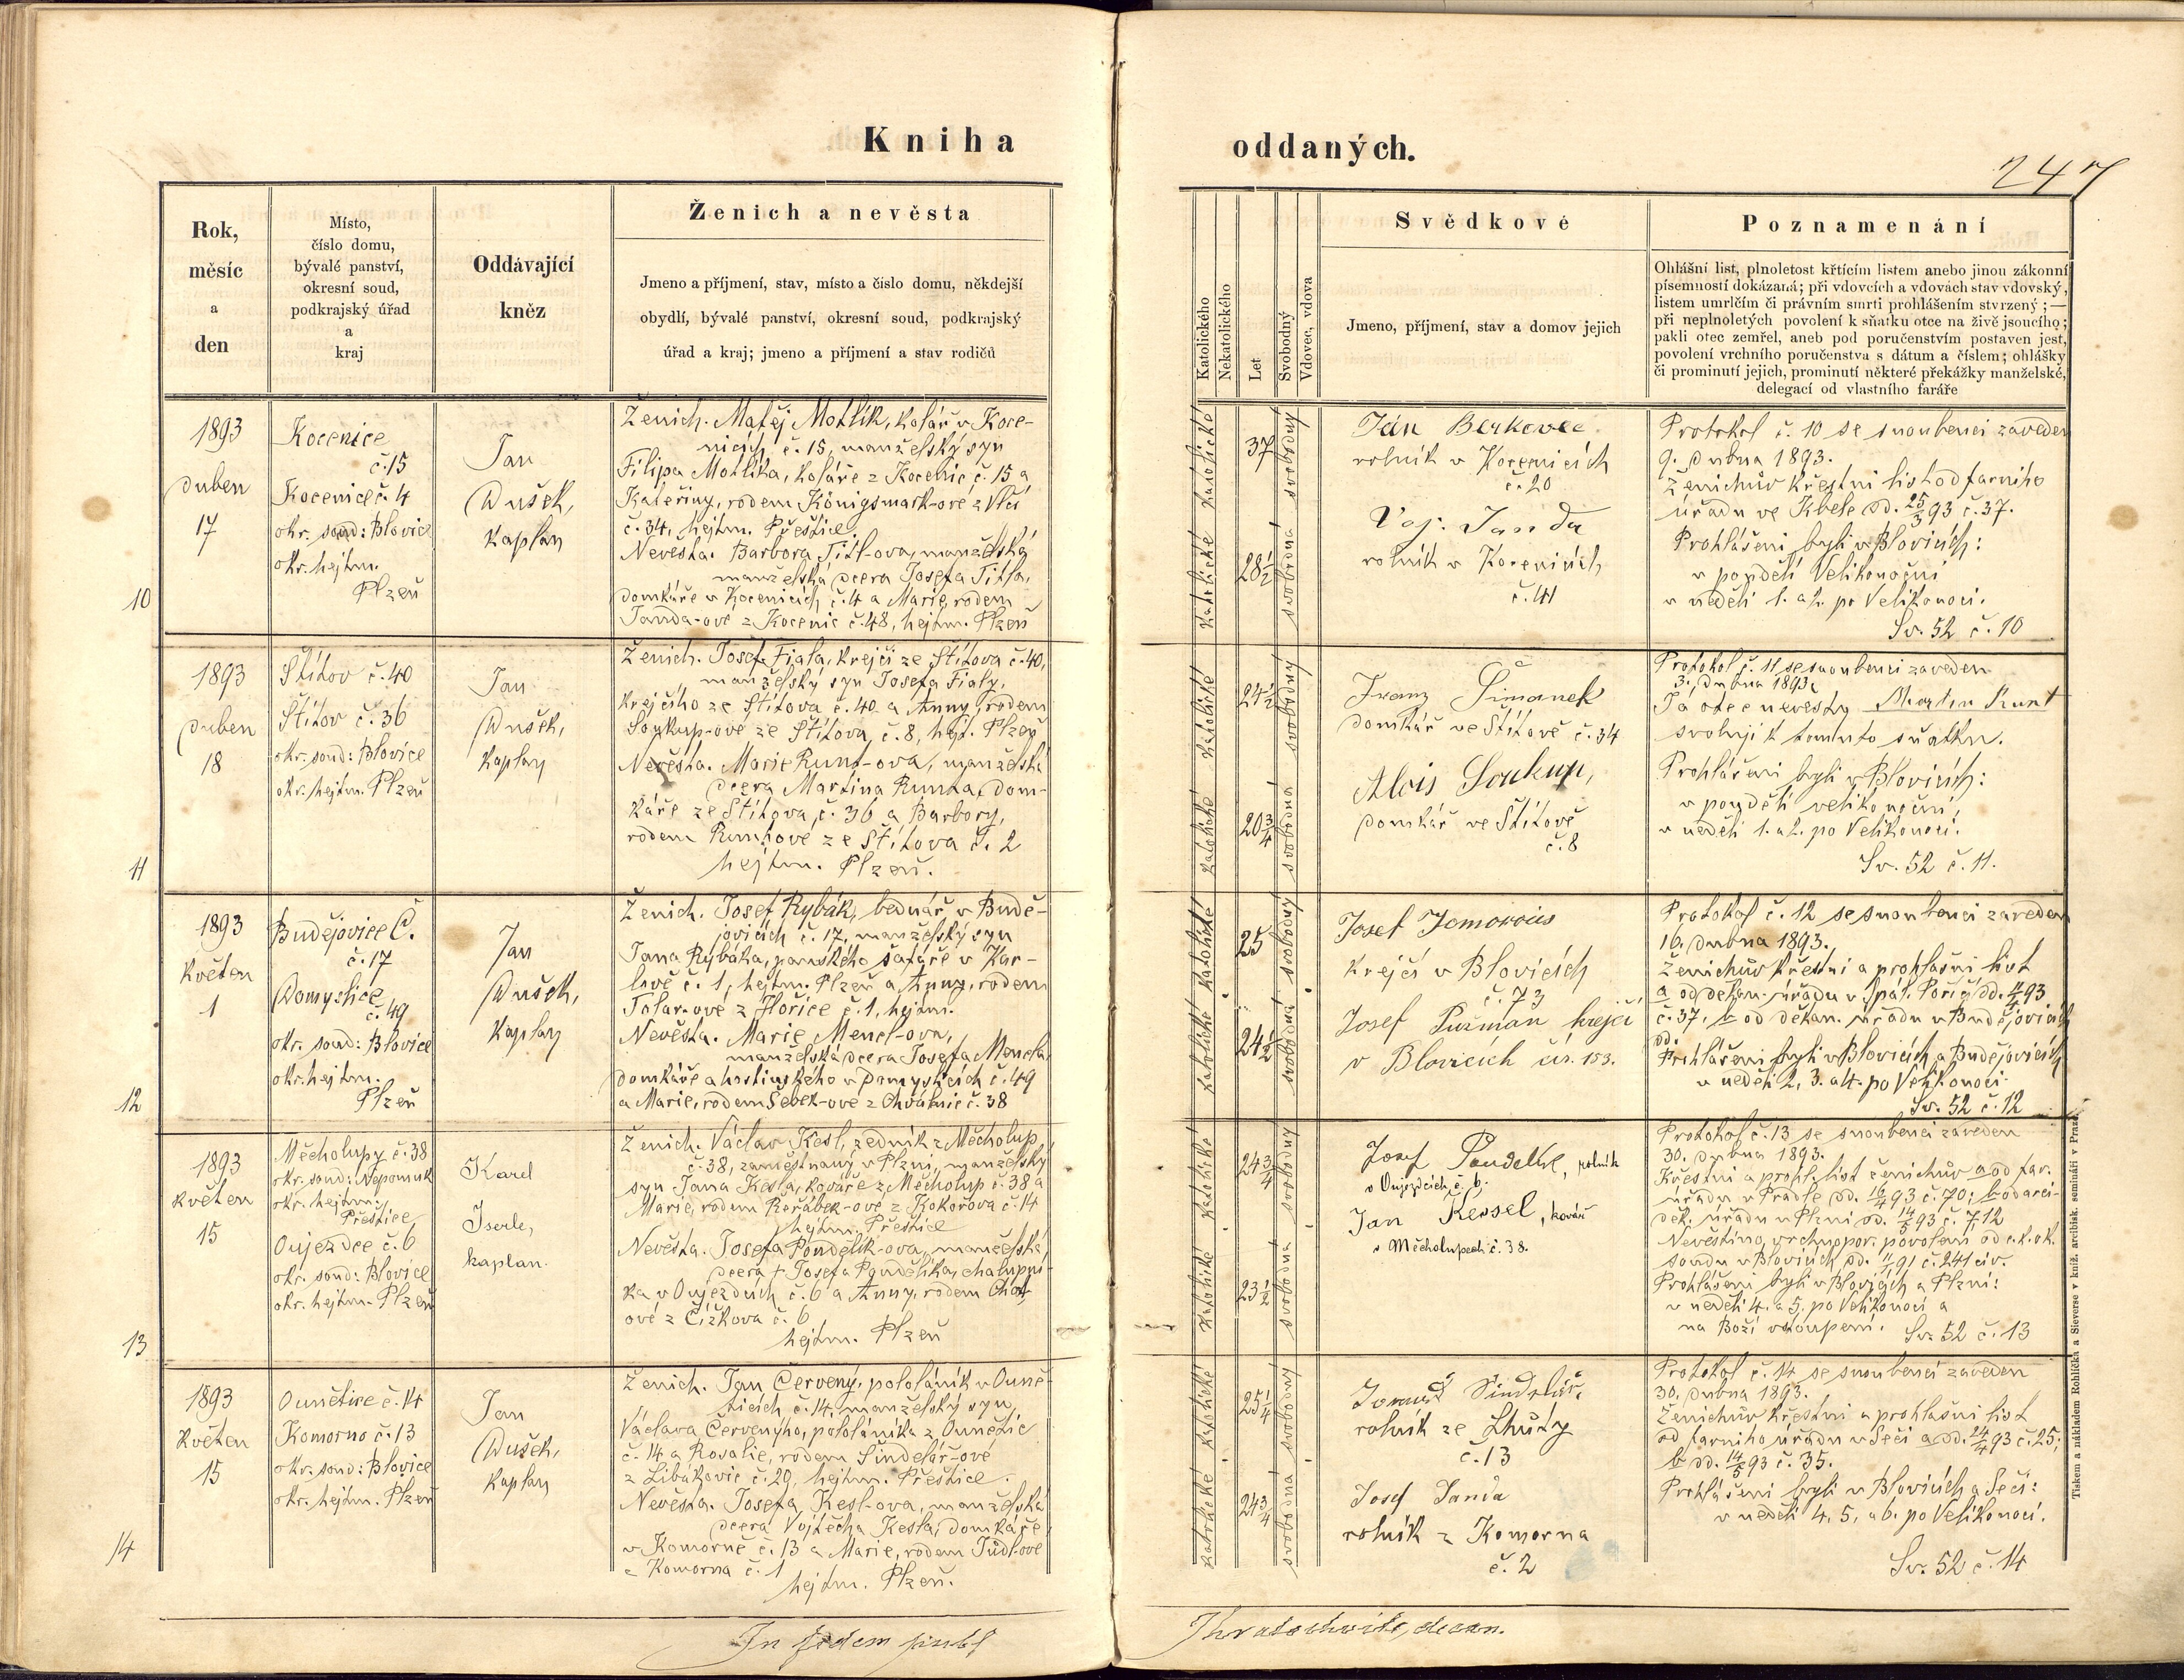 Kniha
oddaných.
247
Rok,
měsíc
a
den
Místo,
číslo domu,
bývalé panství,
okresní soud,
podkrajský úřad
a
kraj
Oddávající
kněz
Ženich a nevěsta
Jmeno a příjmení, stav, místo a číslo domu, někdejší
obydlí, bývalé panství, okresní soud, podkrajský
úřad a kraj; jmeno a příjmení a stav rodičů
Katolického
Nekatolického
Let
Svobodný
Vdovec, vdova
Svědkové
Jmeno, příjmení, stav a domov jejich
Poznamenání
Ohlášní list, plnoletost křtícím listem anebo jinou zákonní
písemností dokázaná; při vdovcích a vdovách stav vdovský,
listem umrlčím či právním smrti prohlášením stvrzený; —
při neplnoletých povolení k sňatku otce na živě jsoucího;
pakli otec zemřel, aneb pod poručenstvím postaven jest,
povolení vrchního poručenstva s dátum a číslem; ohlášky
či prominutí jejich, prominutí některé překážky manželské,
delegací od vlastního faráře
10
1893
duben
17
Kocenice
č. 15
Kocenice č. 4
okr. soud: Blovice
okr. hejtm.
Plzeň
Jan
Dušek,
kaplan
Ženich. Matěj Motlík, kolář v Koce-
nicích č. 15, manželský syn
Filipa Motlíka, koláře z Kocenic č. 15 a
Kateřiny, rodem Königsmark-ové z Vlčí
č. 34, hejtm. Přeštice.
Nevěsta. Barbora Titl-ova, manželská
manželská dcera Josefa Titla,
domkáře v Kocenicích č. 4 a Marie, rodem
Janda-ové z Kocenic č. 48, hejtm. Plzeň
katolické katolické
37
28 1/2
svobodná svobodný
Ján Berkovec
rolník v Kocenicích
č. 20
Voj. Janda
rolník v Kocenicích
č. 41
Protokol č. 10 se snoubenci zaveden
9. dubna 1893.
Ženichův křestní list od farního
úřadu ve Kbele dd. 25/3 93 č. 37.
Prohlášeni byli v Blovicích:
v pondělí Velikonoční
v neděli 1. a 2. po Velikonoci.
Sv. 52 č. 10
11
1893
duben
18
Štítov č. 40
Štítov č. 36
okr. soud: Blovice
okr. hejtm. Plzeň
Jan
Dušek,
kaplan
Ženich. Josef Fiala, krejčí ze Štítova č. 40,
manželský syn Josefa Fialy,
krejčího ze Štítova č. 40 a Anny, rodem
Soukup-ové ze Štítova č. 8, hejt. Plzeň
Nevěsta. Marie Runt-ova, manželská
dcera Martina Runta, dom-
káře ze Štítova č. 36 a Barbory,
rodem Runtové ze Štítova č. 2
hejtm. Plzeň.
katolické katolické
24 1/2
20 3/4
svobodná svobodný
Franz Šimanek
domkář ve Štítově č. 34
Alois Soukup,
domkář ve Štítově
č. 8
Protokol č. 11 se snoubenci zaveden
3. dubna 1893.
Já otec nevěsty Martin Runt
svoluji k tomuto sňatku.
Prohlášeni byli v Blovicích:
v pondělí velikonoční,
v neděli 1. a 2. po Velikonoci.
Sv. 52 č. 11.
12
1893
květen
1
Budějovice Č.
č. 17
Domyslice
č. 49
okr. soud: Blovice
okr. hejtm.
Plzeň
Jan
Dušek,
kaplan
Ženich. Josef Rybák, bednář v Budě-
jovicích č. 17, manželský syn
Jana Rybáka, panského šafáře v Kar-
lově č. 1, hejtm. Plzeň a Anny, rodem
Tolar-ové z Hořice č. 1, hejtm.
Nevěsta. Marie Mencl-ova,
manželská dcera Josefa Mencla,
domkáře a hostinského v Domyslicích č. 49
a Marie, rodem Šebek-ové z Chválenic č. 38
katolické katolické
25
24 1/2
svobodná svobodný
Josef
krejčí v Blovicích
č. 73
Josef Pužman krejčí
v Blovicích čís. 153.
Protokol č. 12 se snoubenci zaveden
16. dubna 1893.
Ženichův křestní a prohlašní list
a od děkan. úřadu v Spál. Poříčí dd. 4/4 93
č. 37. b od děkan. úřadu v Budějovicích
dd.
Prohlášeni byli v Blovicích a Budějovicích
v neděli 2, 3. a 4. po Velikonoci.
Sv. 52 č. 12
13
1893
květen
15
Měcholupy č. 38
okr. soud: Nepomuk
okr. hejtm.
Přeštice
Oujezdce č. 6
okr. soud: Blovice
okr. hejtm. Plzeň
Karel
Iserle,
kaplan.
Ženich. Václav Kesl, zedník z Měcholup
č. 38, zaměstnaný v Plzni, manželský
syn Jana Kesla, kováře z Měcholup č. 38 a
Marie, rodem Keřábek-ové z Kokořova č. 14
hejtm. Přeštice
Nevěsta. Josefa Pondělík-ova, manželská
dcera † Josefa Pondělíka, chalupní-
ka v Oujezdcích č. 6 a Anny, rodem
ové z Čížkova č. 6
hejtm. Plzeň
katolické katolické
24 3/4
23 1/2
svobodná svobodný
Josef Pondelík, rolník
v Oujezdcích č. 6.
Jan Kessel, kovář
v Měcholupech č. 38.
Protokol č. 13 se snoubenci zaveden
30. dubna 1893.
Křestní a prohl. list ženichův a od far.
úřadu v Prádle dd. 16/4 93 č. 70; b od arci-
děk. úřadu v Plzni dd. 14/5 93 č. 712
Nevěstino, vrchnopor. povolení od c. k. ok.
soudu v Blovicích dd. 91 č. 241 civ.
Prohlášeni byli v Blovicích a Plzni:
v neděli 4. a 5. po Velikonoci a
na Boží vstoupení. Sv. 52 č. 13
14
1893
květen
15
Ounětice č. 14
Komorno č. 13
okr. soud: Blovice
okr. hejtm. Plzeň
Jan
Dušek,
kaplan
Ženich. Jan Červený, pololáník v Ouně-
ticích č. 14, manželský syn
Václava Červenýho, pololáníka z Ounětic
č. 14 a Rosalie, rodem Šindelář-ové
z Libákovic č. 29, hejtm. Přeštice.
Nevěsta. Josefa Kesl-ova, manželská
dcera Vojtěcha Kesla, domkáře
v Komorně č. 13 a Marie, rodem Tůdl-ové
z Komorna č. 1
hejtm. Plzeň.
katolické katolické
25 1/4
24 3/4
svobodná svobodný
Tomáš Šindelář,
rolník ze Lhůty
č. 13
Josef Janda
rolník z Komorna
č. 2
Protokol č. 14 se snoubenci zaveden
30. dubna 1893.
Ženichův křestní a prohlašní list
od farního úřadu v Seči a dd. 24/4 93 č. 25;
b dd. 14/5 93 č. 35.
Prohlášeni byli v Blovicích a Seči:
v neděli 4, 5, a 6. po Velikonoci.
Sv. 52 č. 14
In fidem
decan.
Tiskem a nákladem Rohlíčka a Sieverse v kníž. arcibisk. semináři v Praze.